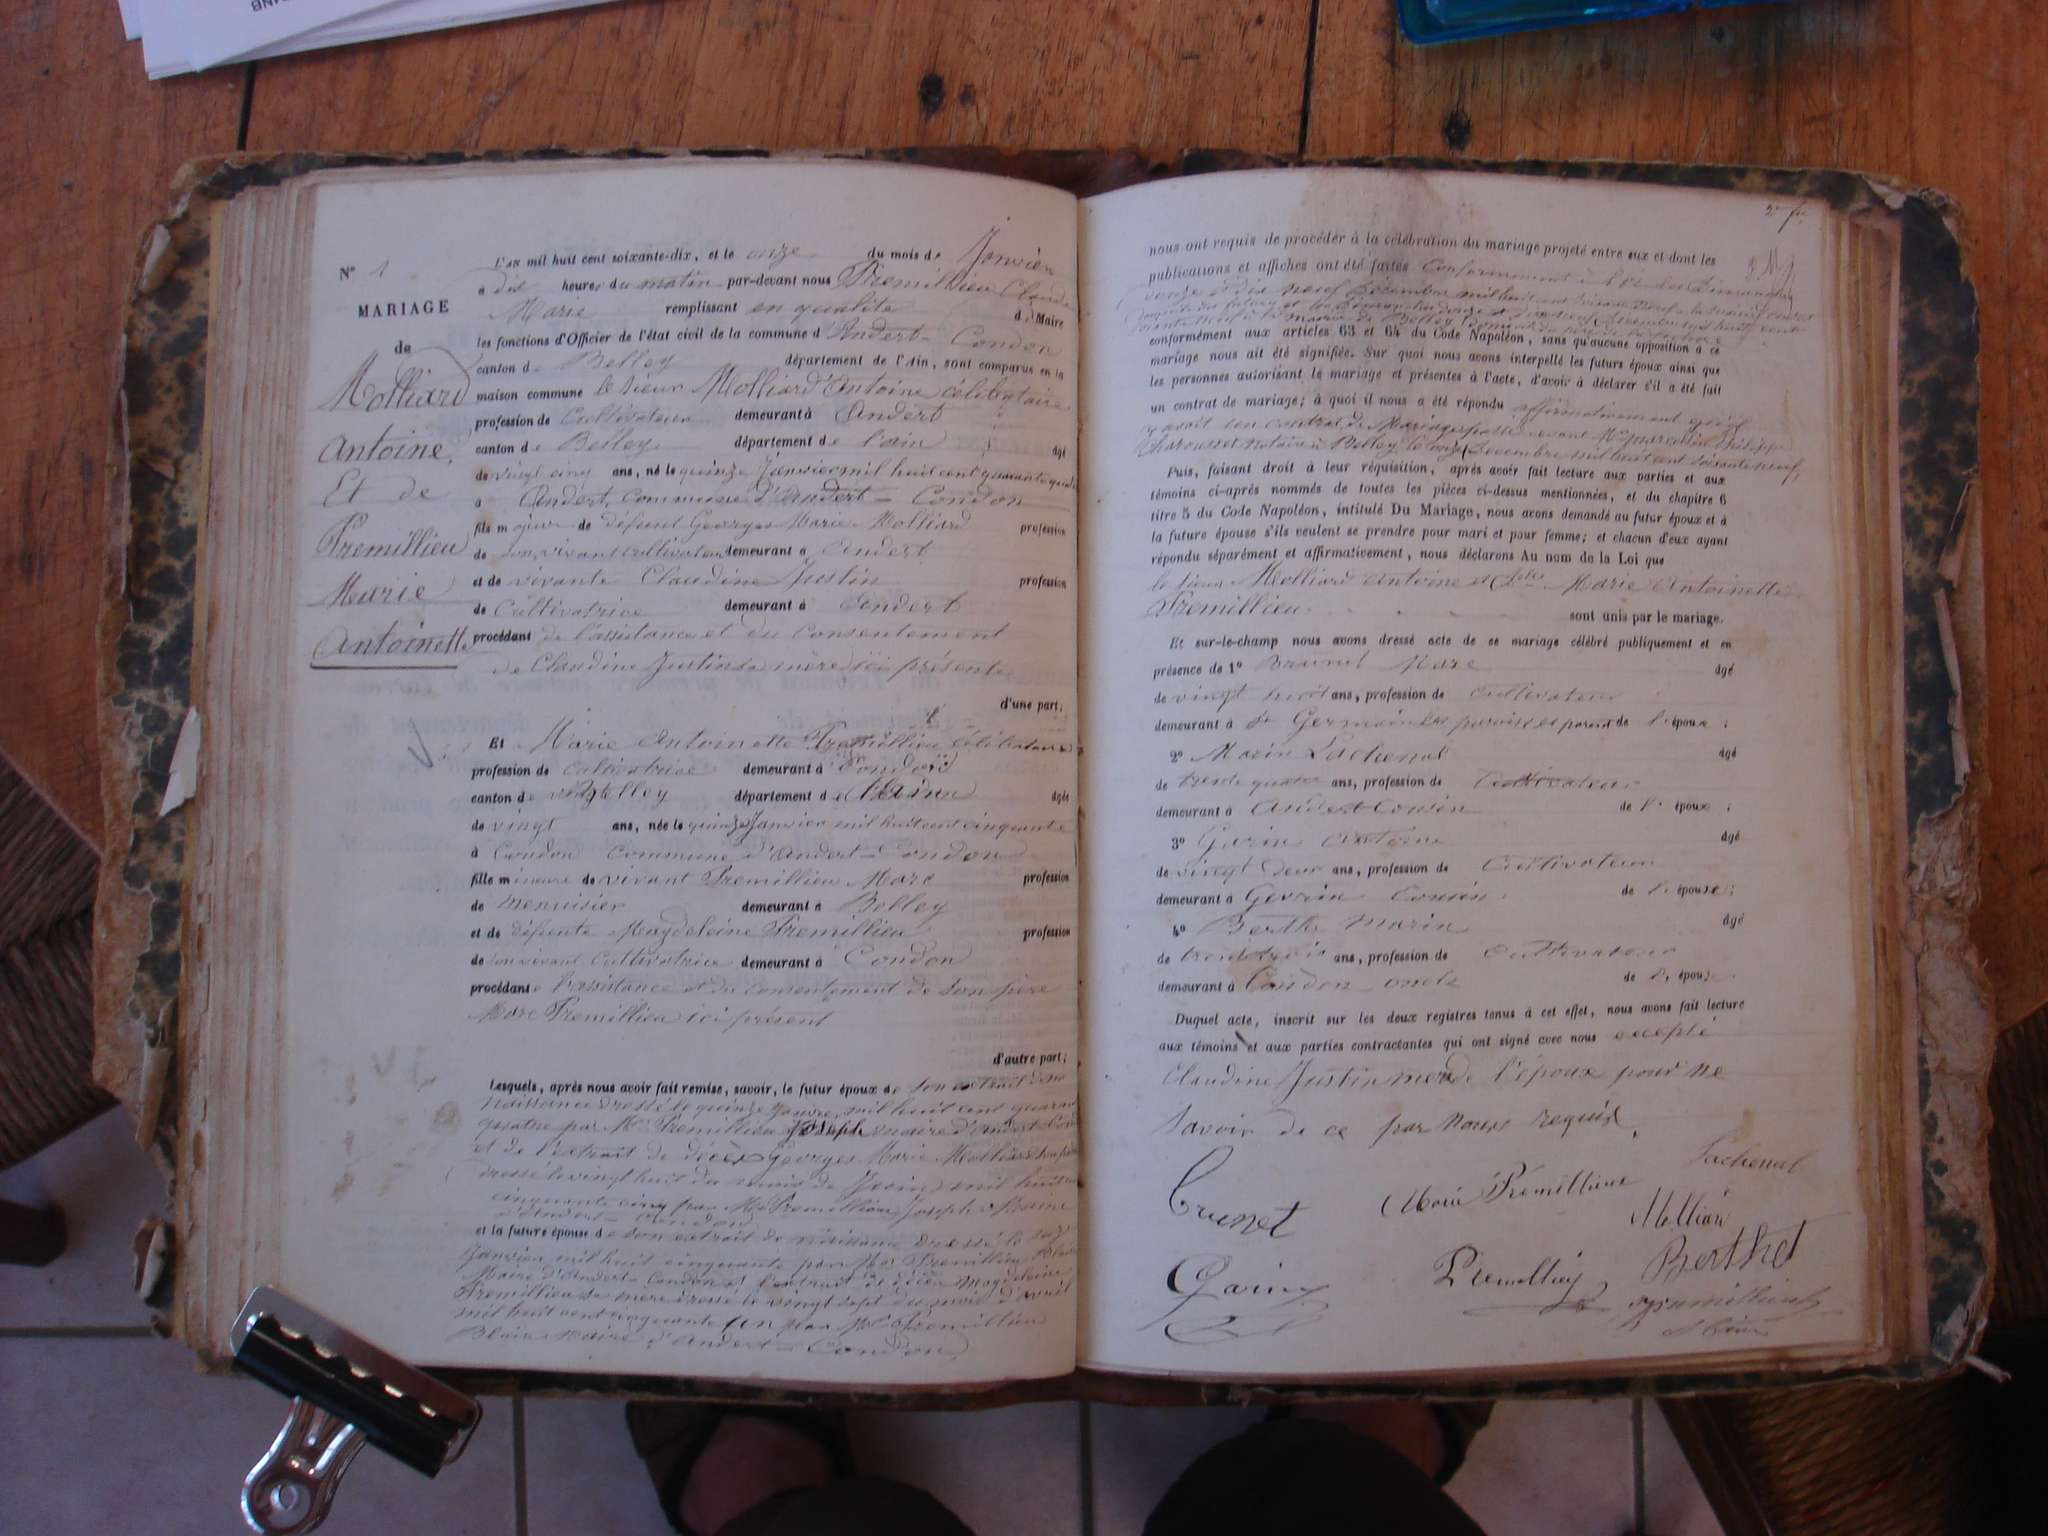 N° 1
MARIAGE
de
Molliard
Antoine
Et de
Premillieu
Marie
Antoinette
L'an mil huit cent soixante-dix, et le onze du mois de Janvier
à dix heures du matin par-devant nous Premillieu Claude
Marie remplissant en qualité de Maire
les fonctions d'Officier de l'état civil de la commune d'Andert-Condon
canton de Belley département de l'Ain, sont comparus en la
maison commune le sieur Molliard Antoine célibataire
profession de Cultivateur demeurant à Andert
canton de Belley département de l'ain âgé
de vingt cinq ans, né le quinze Janvier mil huit cent quarante quatre
à Andert, Commune d'Andert-Condon
fils majeur de défunt Georges Marie Molliard profession
de son vivant cultivateur demeurant à Andert
et de vivante Claudine Justin profession
de Cultivatrice demeurant à Andert
procédant de l'assistance et du Consentement
de Claudine Justin sa mère ici présente
d'une part;
Et Marie Antoinette Premillieu Célibataire
profession de cultivatrice demeurant à Condon
canton de Belley département de l'Ain âgée
de vingt ans, née le quinze Janvier mil huit cent cinquante
à Condon Commune d'Andert-Condon
fille mineure de vivant Premillieu Marc profession
de menuisier demeurant à Belley
et de défunte Magdeleine Premillieu profession
de son vivant Cultivatrice demeurant à Condon
procédant de l'assistance et du consentement de son père
Marc Premillieu ici présent
d'autre part;
Lesquels, après nous avoir fait remise, savoir, le futur époux de son extrait de
naissance dressé le quinze Janvier mil huit cent quarante
quatre par Mr Premillieu Joseph maire d'Andert
et de l'extrait de décès Georges Marie Molliard son père
dressé le vingt huit du mois de mil huit cent
cinquante cinq par Mr Premillieu Joseph Maire
d'Andert-Condon
et la future épouse de son extrait de naissance dressé le
Janvier mil huit cinquante par Mr Premillieu
Maire d'Andert-Condon et l'extrait de décès Magdeleine
Premillieu sa mère dressé le vingt sept du mois d'avril
mil huit cent cinquante un par Mr Premillieu
Maire d'Andert-Condon
nous ont requis de procéder à la célébration du mariage projeté entre eux et dont les
publications et affiches ont été faites Conformément à
douze et dix neuf Décembre mil huit cent soixante neuf
conformément aux articles 63 et 64 du Code Napoléon, sans qu'aucune opposition à ce
mariage nous ait été signifiée. Sur quoi nous avons interpellé les futurs époux ainsi que
les personnes autorisant le mariage et présentes à l'acte, d'avoir à déclarer s'il a été fait
un contrat de mariage; à quoi il nous a été répondu affirmativement qu'il
y avait un contrat de Mariage passé devant Me
notaire à Belley le onze Décembre mil huit cent soixante neuf,
Puis, faisant droit à leur réquisition, après avoir fait lecture aux parties et aux
témoins ci-après nommés de toutes les pièces ci-dessus mentionnées, et du chapitre 6
titre 5 du Code Napoléon, intitulé Du Mariage, nous avons demandé au futur époux et à
la future épouse s'ils veulent se prendre pour mari et pour femme; et chacun d'eux ayant
répondu séparément et affirmativement, nous déclarons Au nom de la Loi que
le sieur Molliard Antoine et Marie Antoinette
Premillieu sont unis par le mariage.
Et sur-le-champ nous avons dressé acte de ce mariage célébré publiquement et en
présence de 1° Brunet Marc âgé
de vingt huit ans, profession de cultivateur
demeurant à St Germain les paroisses parent de l'époux;
2° Marin Lachenal âgé
de trente quatre ans, profession de Cultivateur
demeurant à Andert Cousin de l'époux;
3° Garin Antoine âgé
de vingt deux ans, profession de Cultivateur
demeurant à Gevrin Cousin de l'épouse;
4° Berthet Marin âgé
de trente trois ans, profession de cultivateur
demeurant à Condon oncle de l'épouse.
Duquel acte, inscrit sur les deux registres tenus à cet effet, nous avons fait lecture
aux témoins et aux parties contractantes qui ont signé avec nous excepté
Claudine Justin mère de l'époux pour ne
savoir de ce par nous requis.
Lachenal
Brunet Marie Prémillieu
Molliard
Garin Premillieu Berthet